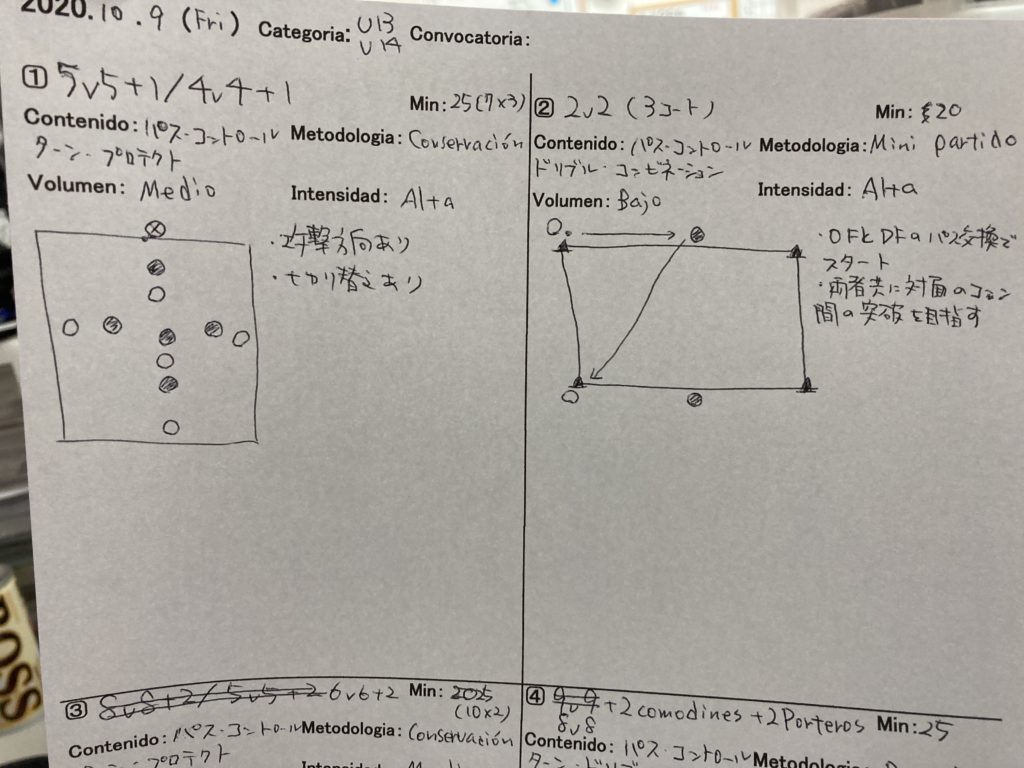 2020.10.9 (Fri) Categoria: U13 U14 Convocatoria:
① 5v5+1/4v4+1 Min: 25(7×3)
Contenido: パス・コントロール Metodologia: Conservación
ターン・プロテクト
Volumen: Medio Intensidad: Alta
・攻撃方向あり
・切り替えあり
② 2v2 (3コート) Min: 20
Contenido: パス・コントロール Metodologia: Mini partido
ドリブル・コンビネーション
Volumen: Bajo Intensidad: Alta
・OFとDFのパス交換で
スタート
・両者共に対面のコーン
間の突破を目指す
③ 8v8+2/5v5+2 6v6+2 Min: 25
(10×2)
Contenido: パス・コントロール Metodologia: Conservación
ターン・プロテクト
④ 8v8 +2 comodines +2 Porteros Min: 25
Contenido: パス・コントロール
BOSS